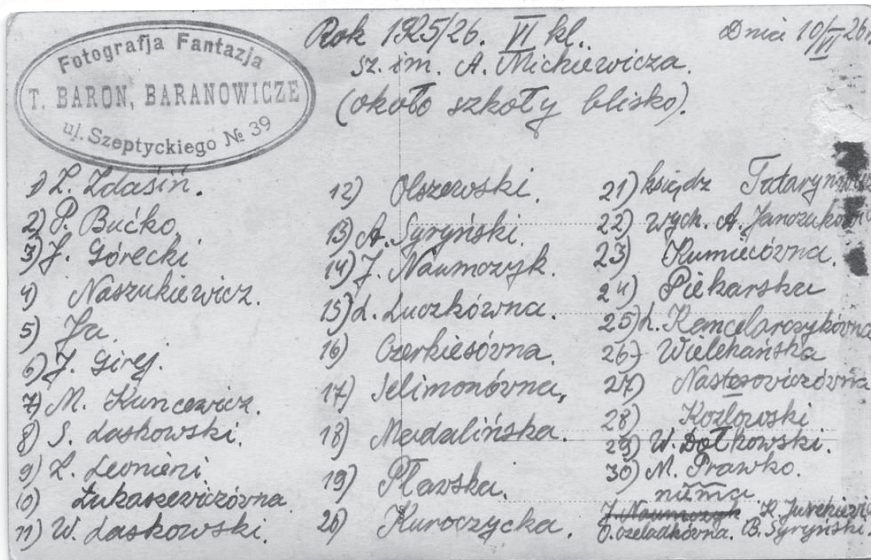 Fotografja Fantazja
T. BARON, BARANOWICZE
ul. Szeptyckiego № 39
Rok 1925/26. VI kl.
sz. im. A. Mickiewicza.
(około szkoły blisko).
Dnia 10/VI 26r.
1) Z. Zdasiń.
2) P. Bućko
3) J. Górecki
4) Naszukiewicz.
5) Ja.
6) J. Girej.
7) M. Kuncewicz.
8) S. Laskowski.
9) Z. Leonieni
10) Łukaszewiczówna.
11) W. Laskowski.
12) Olszewski.
13) A. Syryński.
14) J. Naumczyk.
15) L. Luczkówna.
16) Czerkiesówna.
17) Selimonówna,
18) Madalińska.
19) Pławska.
20) Kuroczycka.
21) ksiądz Tatarynowicz
22) wych. A. Janczukowicz
23) Kumiecówna.
24) Piekarska
25) H. Kancelarczykówna
26) Wielehańska
27) Nasterowiczówna
28) Kozłowski
29) W. Dołkowski.
30) M. Prawko.
niema
J. Naumczyk Z. Jurkiewicz
O. Czeladkówna. B. Syryński.